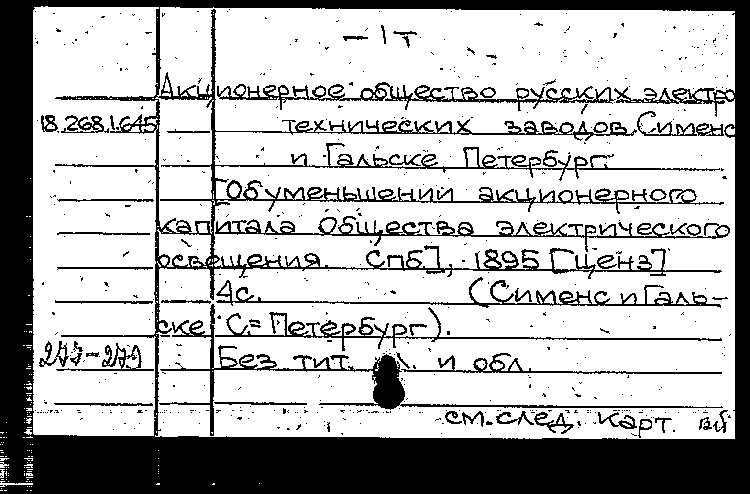 — 1 т
Акционерное общество русских электро
18.268.1.645 технических заводов Сименс
и Гальске, Петербург.
[Об уменьшении акционерного
капитала Общества электрического
освещения. Спб], 1895 [ценз]
4с. (Сименс и Галь-
ске С=Петербург).
277-279 Без тит. л. и обл.
см. след. карт.